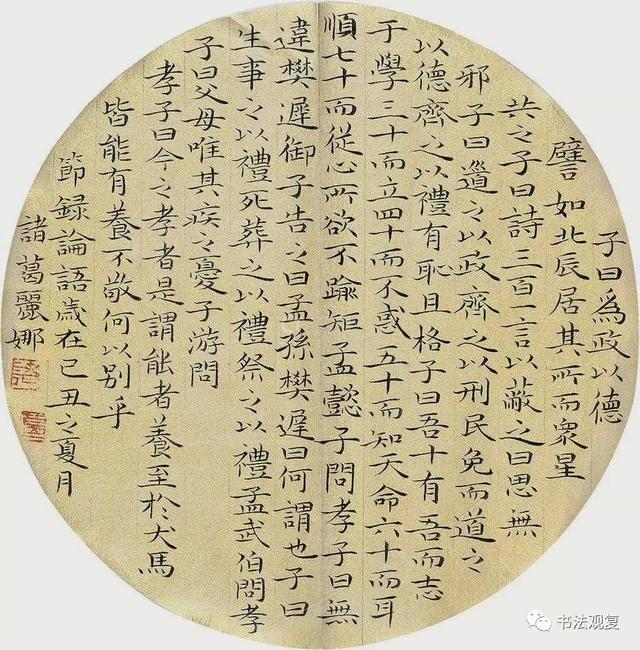 子曰爲政以德
譬如北辰居其所而衆星
共之子曰詩三百一言以蔽之曰思無
邪子曰道之以政齊之以刑民免而道之
以德齊之以禮有恥且格子曰吾十有吾而志
于學三十而立四十而不惑五十而知天命六十而耳
順七十而從心所欲不踰矩孟懿子問孝子曰無
違樊遲御子告之曰孟孫樊遲曰何謂也子曰
生事之以禮死葬之以禮祭之以禮孟武伯問孝
子曰父母唯其疾之憂子游問
孝子曰今之孝者是謂能者養至於犬馬
皆能有養不敬何以別乎
節録論語歲在己丑之夏月
諸葛麗娜
书法观复